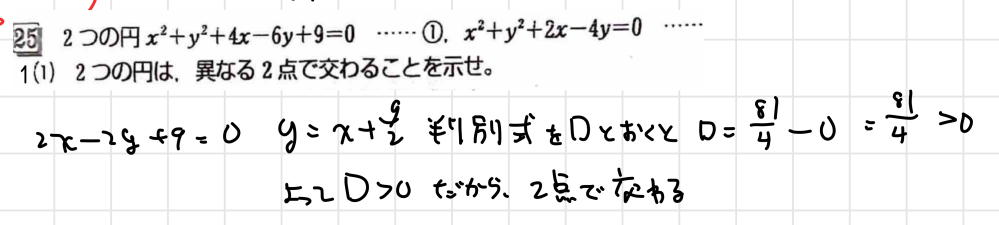 25 2つの円 x²+y²+4x−6y+9=0 ……①, x²+y²+2x−4y=0 ……
1(1) 2つの円は，異なる2点で交わることを示せ。
2x−2y+9=0 y=x+9/2 判別式をDとおくと D=81/4−0 =81/4 >0
よって D>0 だから、2点で交わる